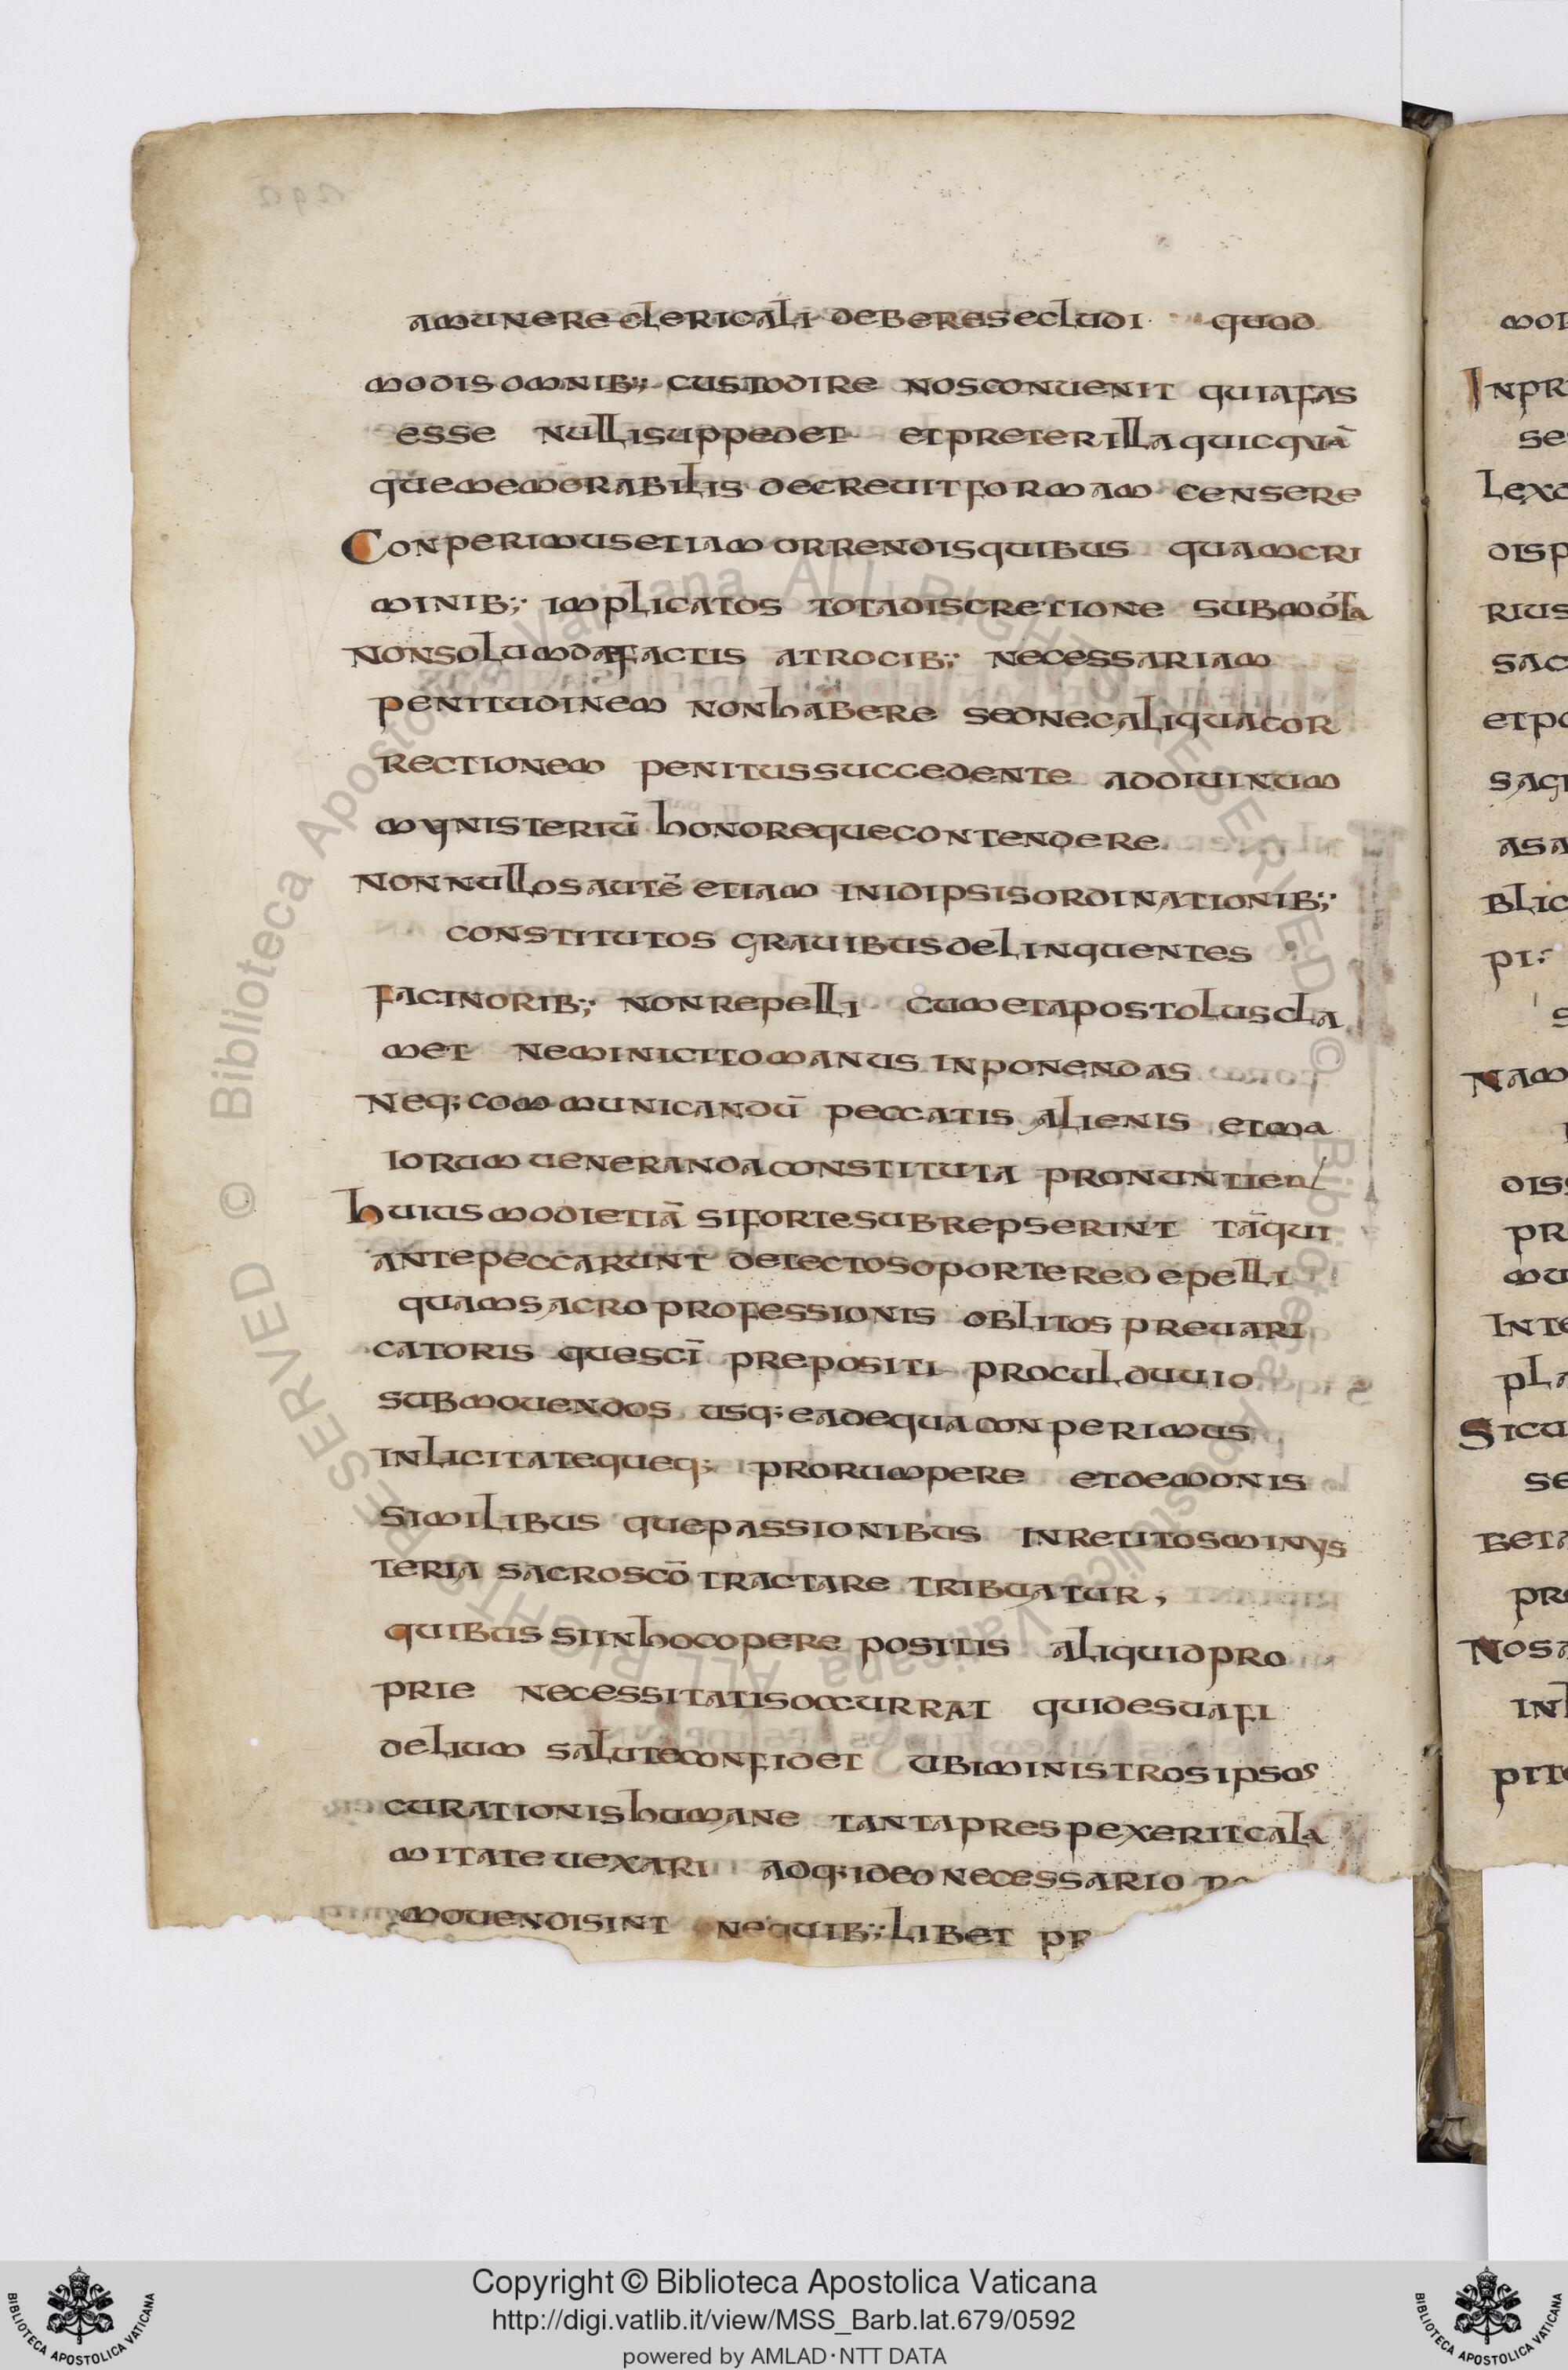 amunere clericali deberesecludi quod
modis omnib; custodire nosconuenit quiafas
esse nullisuppedet etpreterillaquicquā
quememorabilis decreuitformam censere
Conperimusetiam orrendisquibus quamcri
minib; implicatos totadiscretione submota
nonsolumdefactis atrocib; necessariam
penitudinem nonhabere sednecaliquacor
rectionem penitussuccedente addiuinum
mynisteriū honorequecontendere
nonnullosautē etiam inidipsisordinationib;
constitutos grauibusdelinquentes
facinorib; nonrepelli cumetapostoluscla
met neminicitomanus inponendas
neq; communicandū peccatis alienis etma
iorumuenerandaconstituta pronuntien
huiusmodietiā sifortesubrepserint tāqui
antepeccarunt detectosoporteredepelli
quamsacro professionis oblitos preuari
catoris quescī prepositi proculduuio
submouendos usq; eadequaconperimus
inlicitatequeq; prorumpere etdemonis
similibus quepassionibus inretitosminys
teria sacroscō tractare tribuatur;
quibus siinhocopere positis aliquidpro
prie necessitatisoccurrat quidesuafi
delium saluteconfidet ubiministrosipsos
curationishumane tantaprespexeritcala
mitateuexari adq;ideonecessario
mouendisint nequib; libet pr
mor
Inpr
se
lexc
disp
rius
sac
etpo
sagr
asa
blic
pi:
s
Nam
diss
pr
mu
inte
pla
Sicu
se
beta
pre
Nosa
inh
pito
© Biblioteca Apostolica Vaticana ALL RIGHTS RESERVED © Biblioteca Apostolica Vaticana ALL RIGHTS RESERVED
Copyright © Biblioteca Apostolica Vaticana
http://digi.vatlib.it/view/MSS_Barb.lat.679/0592
powered by AMLAD·NTT DATA
BIBLIOTECA APOSTOLICA VATICANA
BIBLIOTECA APOSTOLICA VATICANA